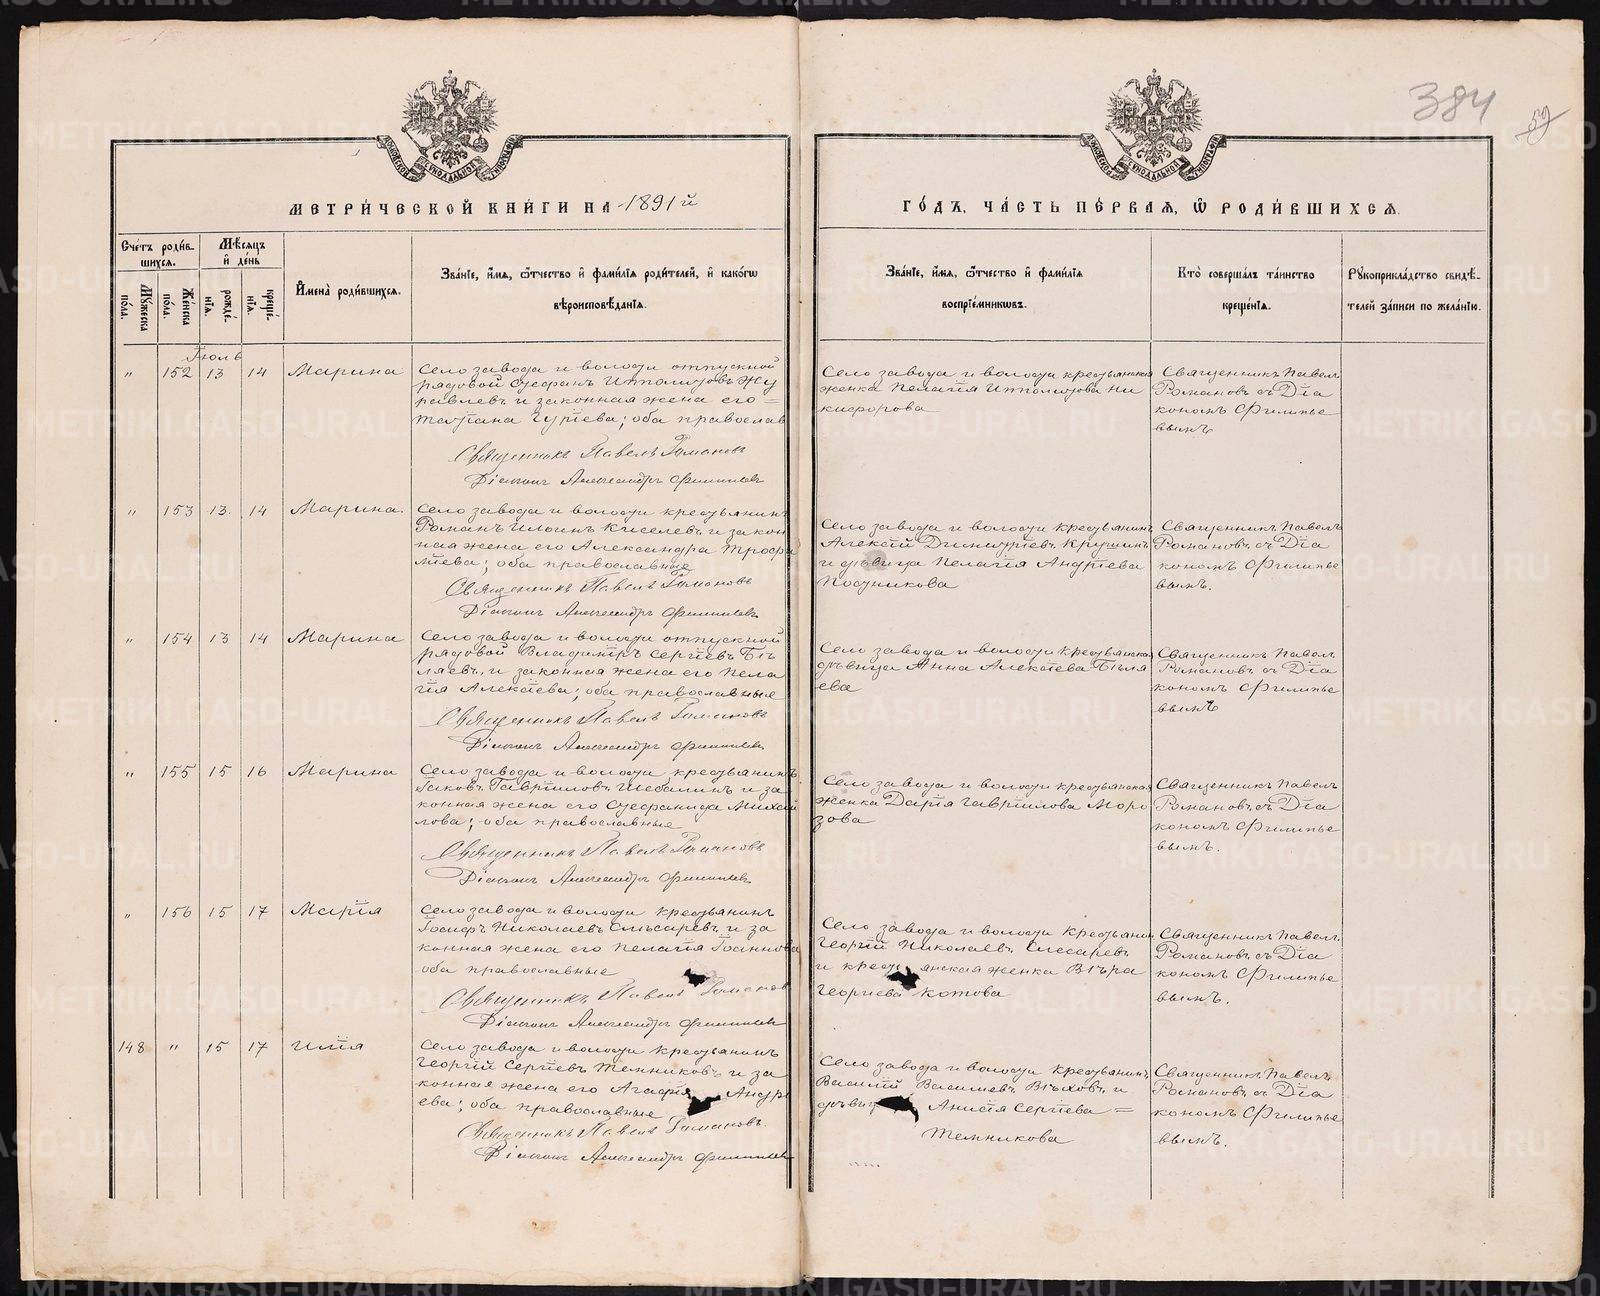 384
59
МЕТРИ́ЧЕСКОЙ КНИ́ГИ НА 1891й
ГО́ДЪ, ЧА́СТЬ ПЕ́РВАЯ, Ѡ РОДИ́ВШИХСЯ.
Сче́тъ роди́в-
шихся.
Мѣ́сяцъ
и̂ де́нь
Му́жеска
по́ла.
Же́нска
по́ла.
рожде́-
нїя.
креще́-
нїя.
И̂мена̀ роди́вшихся.
Зва́нїе, и̂́мя, ѻ́тчество и̂ фами́лїя роди́телей, и̂ како́гѡ
вѣроисповѣ́данїя.
Зва́нїе, и̂́мя, ѻ́тчество и̂ фами́лїя
воспрїе́мникѡвъ.
Кто̀ соверша́лъ та́инство
креще́нїя.
Рꙋкоприкла́дство свидѣ́-
телей за́писи по жела́нїю.
Іюль
" 152 13 14 Марина
Село завода и волости отпускной
рядовой Стефанъ Ипполитовъ Жу
равлевъ и законная жена его =
Татіана Гуріева; оба православ
Священникъ Павелъ Романовъ
Діаконъ Александръ Филипьев
Село завода и волости крестьянская
женка Пелагія Ипполитова Ни
кифорова
Священникъ Павелъ
Романовъ съ Діа
кономъ Филипье
вымъ
" 153 13. 14 Марина.
Село завода и волости крестьянинъ
Романъ Ильинъ Киселевъ и закон
ная жена его Александра Трофи
міева; оба православные
Священникъ Павелъ Романовъ
Діаконъ Александръ Филипьев
Село завода и волости крестьянинъ
Алексій Димитріевъ Крушинъ
и дѣвица Пелагія Андріева
Посникова
Священникъ Павелъ
Романовъ съ Діа
кономъ Филипье
вымъ.
" 154 13 14 Марина
Село завода и волости отпускной
рядовой Владиміръ Сергіевъ Бѣ
ляевъ и законная жена его Пела
гія Алексіева; оба православные
Священникъ Павелъ Романовъ
Діаконъ Александръ Филипьев
Село завода и волости крестьянская
дѣвица Анна Алексіева Бѣля
ева
Священникъ Павелъ
Романовъ съ Діа
кономъ Филипье
вымъ
" 155 15 16 Марина
Село завода и волости крестьянинъ
Іаковъ Гавріиловъ Шебалинъ и за
конная жена его Стефанида Михаи
лова; оба православные
Священникъ Павелъ Романовъ
Діаконъ Александръ Филипьев
Село завода и волости крестьянская
женка Дарія Гавріилова Моро
зова
Священникъ Павелъ
Романовъ съ Діа
кономъ Филипье
вымъ.
" 156 15 17 Марія
Село завода и волости крестьянинъ
Іосифъ Николаевъ Слѣсаревъ и за
конная жена его Пелагія Іоаннова
оба православные
Священникъ Павелъ Романовъ
Діаконъ Александръ Филипьев
Село завода и волости крестьянин
Георгій Николаевъ Слесаревъ
и крестьянская женка Вѣра
Георгіева Котова
Священникъ Павелъ
Романовъ съ Діа
кономъ Филипье
вымъ.
148 " 15 17 Илія
Село завода и волости крестьянинъ
Георгій Сергіевъ Темниковъ и за
конная жена его Агафія Андрі
ева; оба православные
Священникъ Павелъ Романовъ.
Діаконъ Александръ Филипьев
Село завода и волости крестьянинъ
Василій Васильевъ Вѣховъ и
дѣвиц Анисія Сергіева =
Темникова
Священникъ Павелъ
Романовъ съ Діа
кономъ Филипье
вымъ.